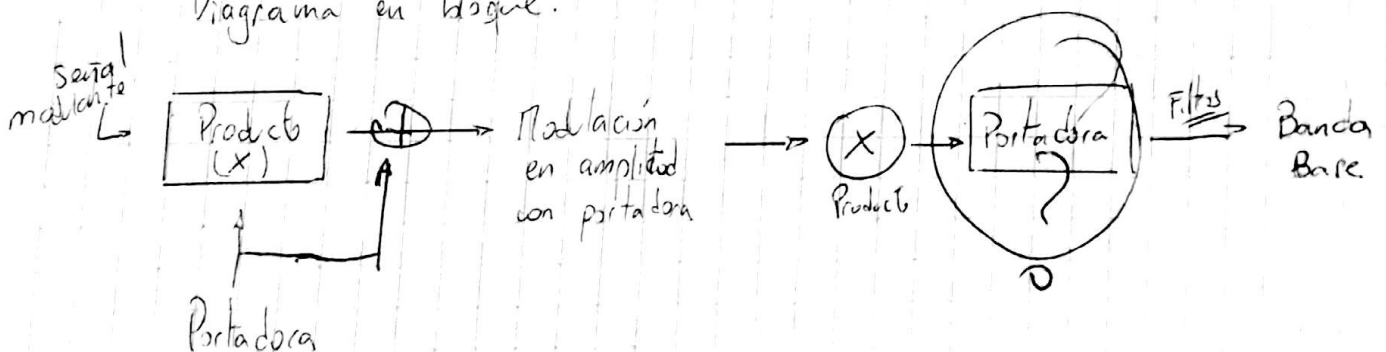 Diagrama en bloque.
Señal
modulante
Producto
(X)
Portadora
Modulación
en amplitud
con portadora
X
Producto
Portadora
?
Filtros
Banda
Base